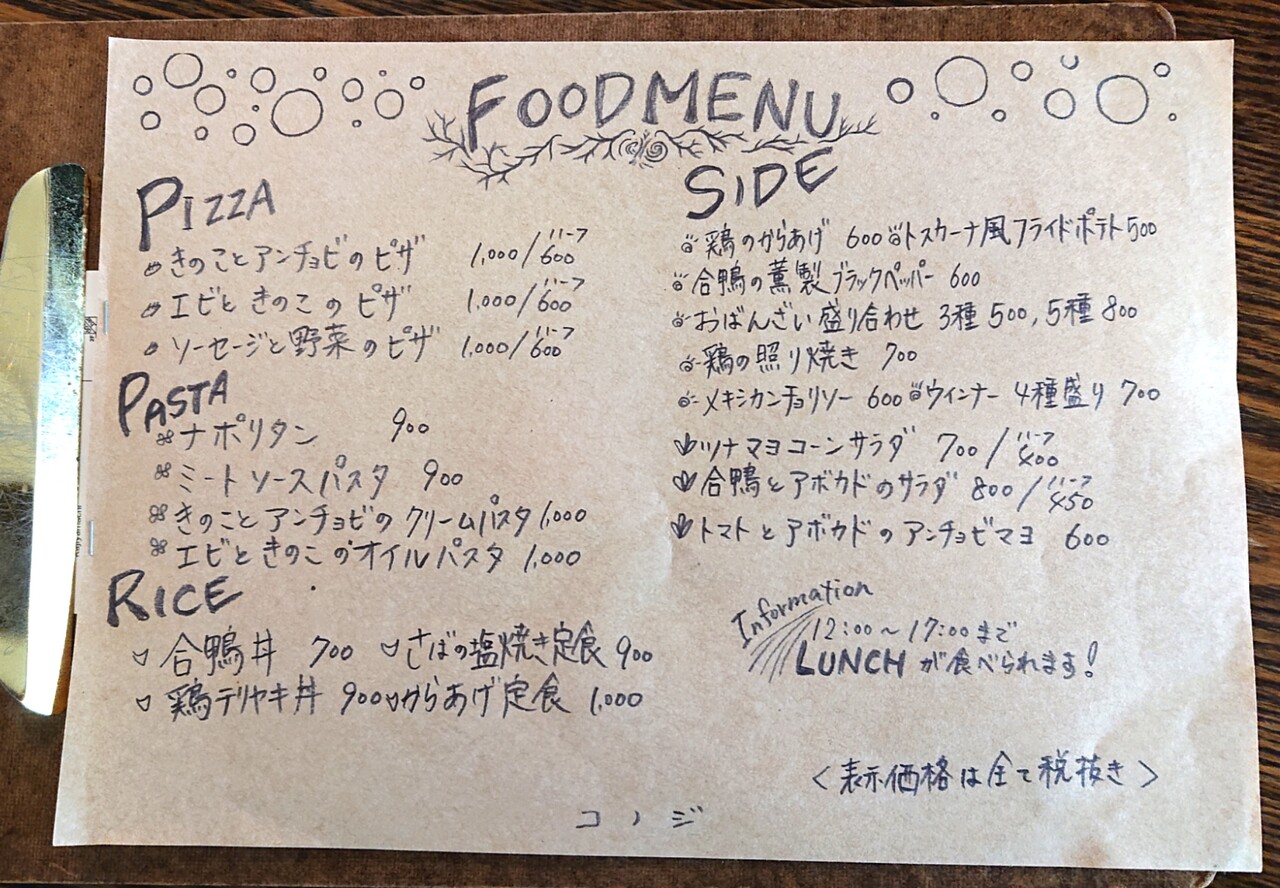 FOOD MENU
PIZZA
きのことアンチョビのピザ 1,000/ハーフ600
エビときのこのピザ 1,000/ハーフ600
ソーセージと野菜のピザ 1,000/ハーフ600
PASTA
ナポリタン 900
ミートソースパスタ 900
きのことアンチョビのクリームパスタ 1,000
エビときのこのオイルパスタ 1,000
RICE
合鴨丼 700 さばの塩焼き定食 900
鶏テリヤキ丼 900 からあげ定食 1,000
SIDE
鶏のからあげ 600 トスカーナ風フライドポテト 500
合鴨の薫製ブラックペッパー 600
おばんざい盛り合わせ 3種 500, 5種 800
鶏の照り焼き 700
メキシカンチョリソー 600 ウィンナー 4種盛り 700
ツナマヨコーンサラダ 700/ハーフ400
合鴨とアボカドのサラダ 800/ハーフ450
トマトとアボカドのアンチョビマヨ 600
Information
12:00~17:00まで
LUNCHが食べられます!
<表示価格は全て税抜き>
コノジ